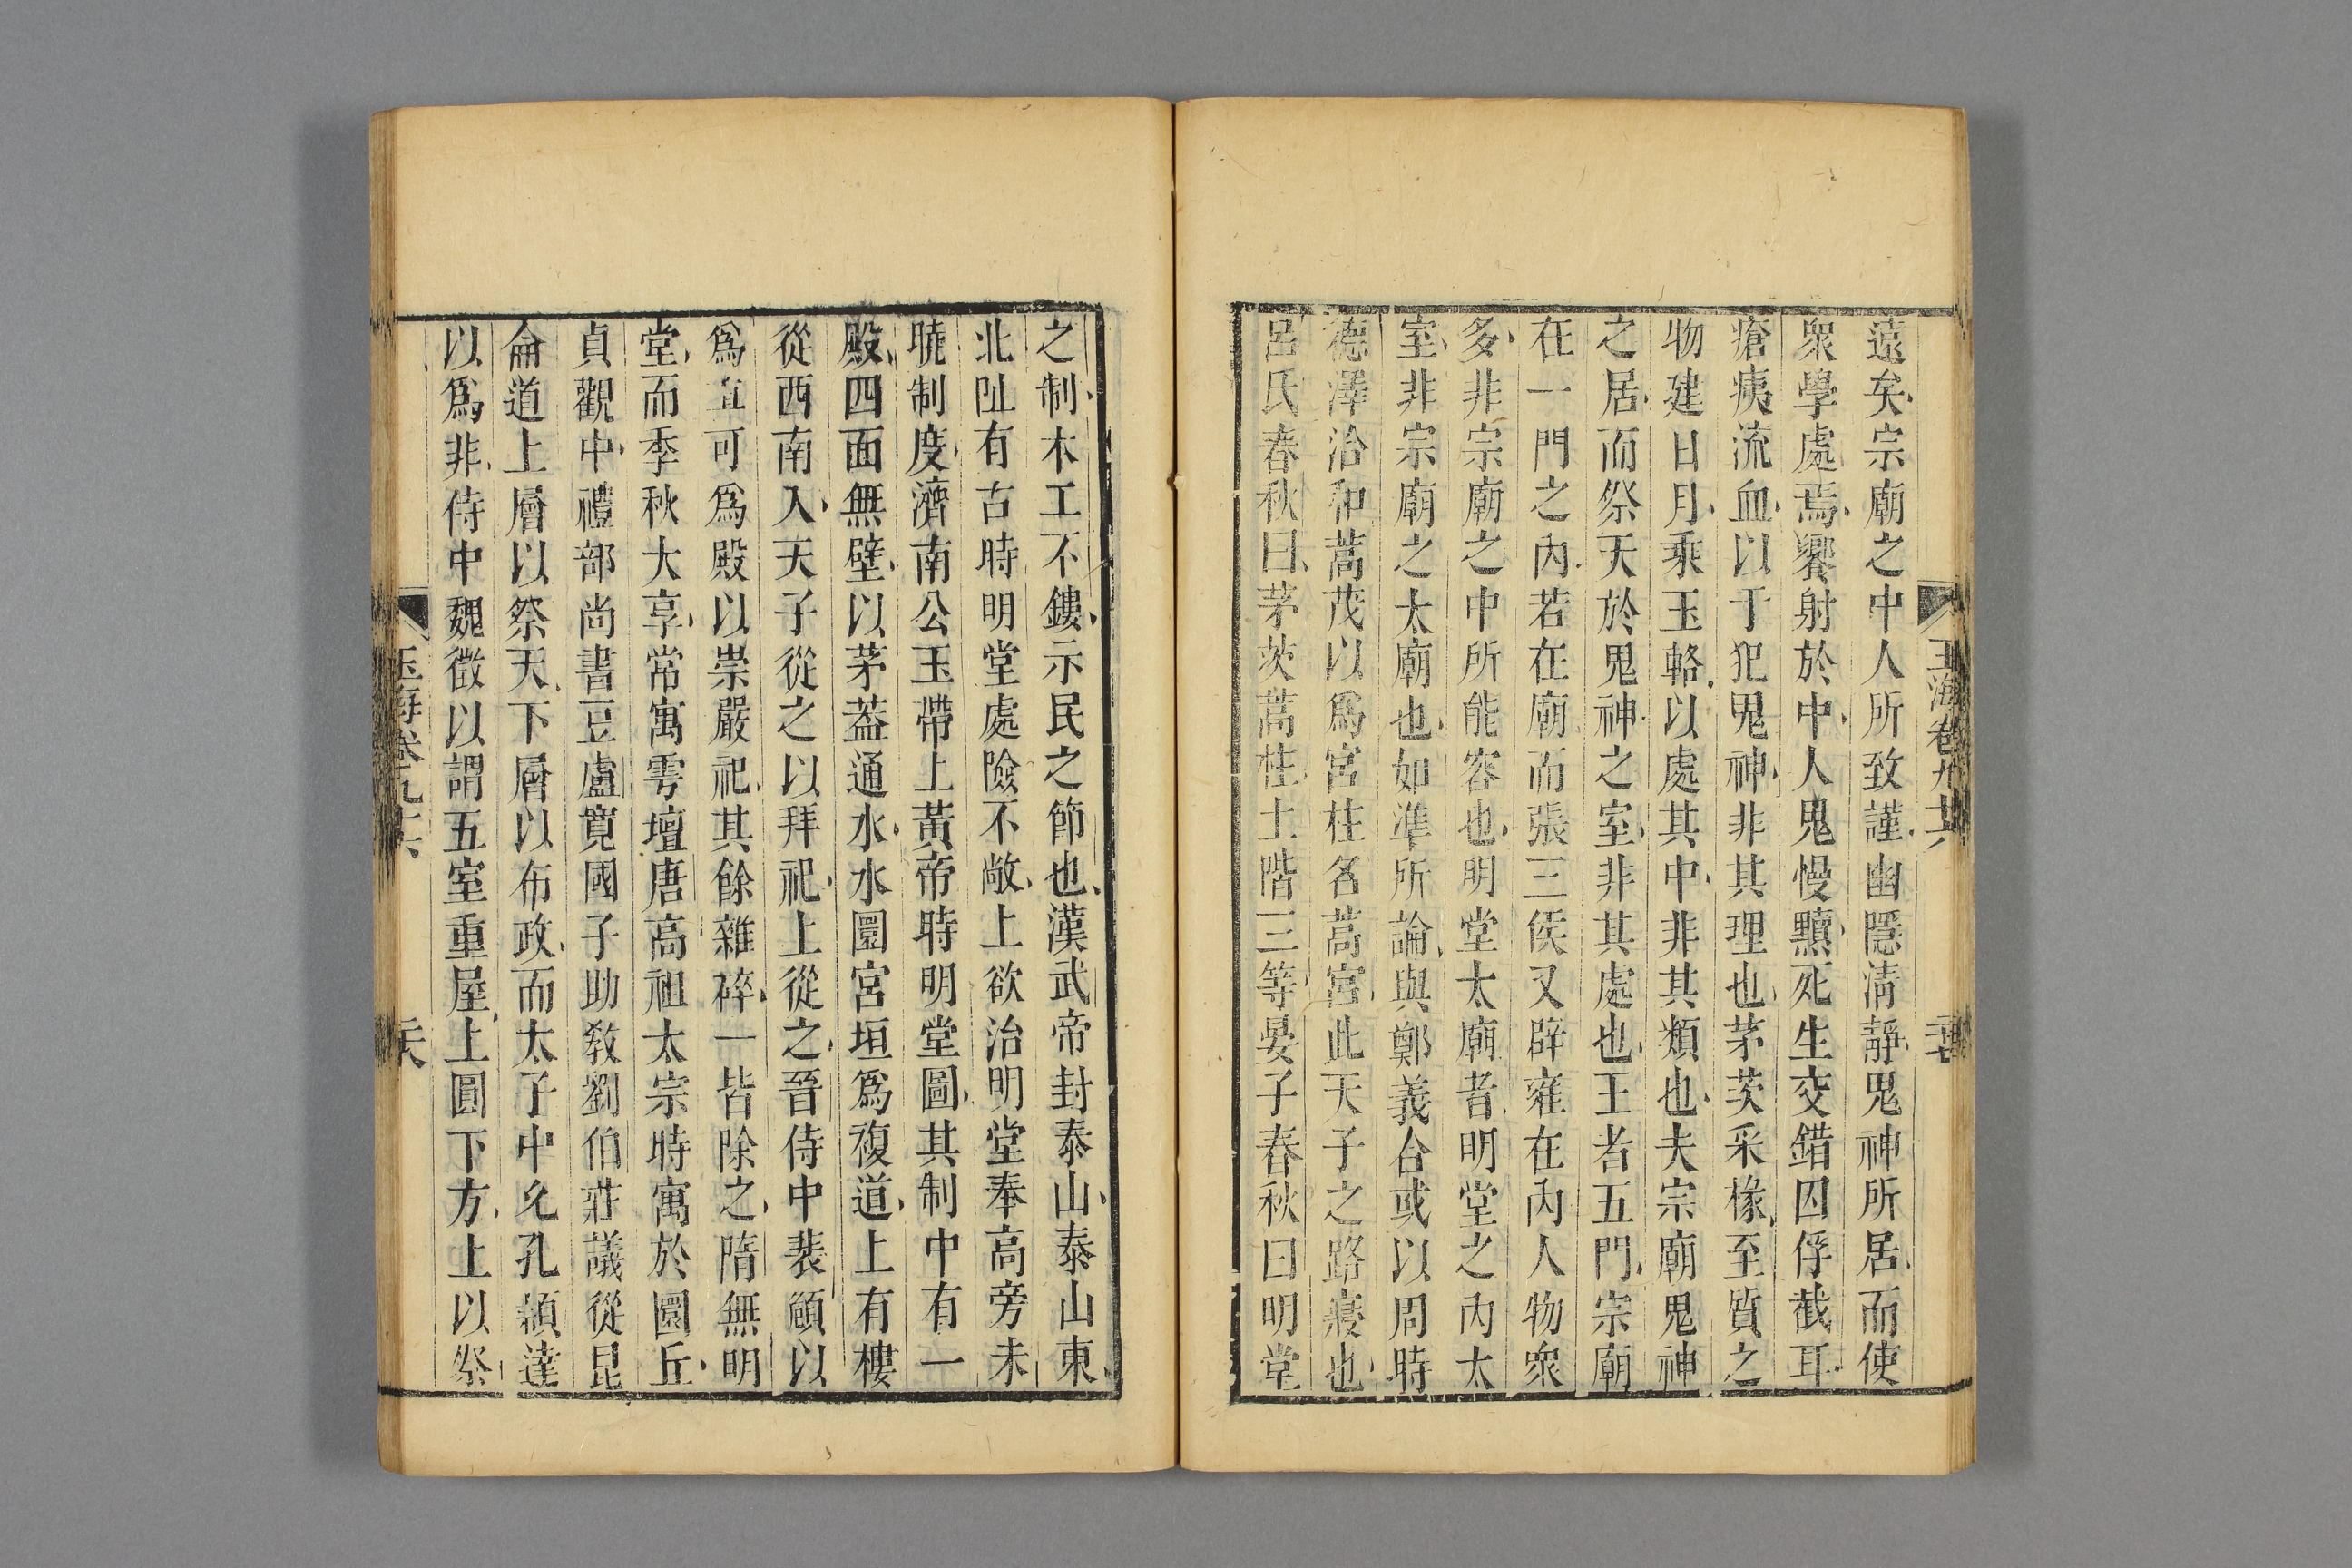 遠矣宗廟之中人所致謹幽隱淸靜鬼神所居而使
衆學處焉饗射於中人鬼慢黷死生交錯囚俘截耳
瘡痍流血以干犯鬼神非其理也茅茨采椽至質之
物建日月乘玉輅以處其中非其類也夫宗廟鬼神
之居而祭天於鬼神之室非其處也王者五門宗廟
在一門之內若在廟而張三侯又辟雍在內人物衆
多非宗廟之中所能容也明堂太廟者明堂之內太
室非宗廟之太廟也如準所論與鄭義合或以周時
德澤洽和蒿茂以爲宮柱名蒿宮此天子之路寢也
呂氏春秋曰茅茨蒿柱土階三等晏子春秋曰明堂
玉海卷九十六
之制木工不鏤示民之節也漢武帝封泰山泰山東
北阯有古時明堂處險不敞上欲治明堂奉高旁未
曉制度濟南公玉帶上黃帝時明堂圖其制中有一
殿四面無壁以茅葢通水水圜宮垣爲複道上有樓
從西南入天子從之以拜祀上從之晉侍中裴頠以
爲直可爲殿以崇嚴祀其餘雜碎一皆除之隋無明
堂而季秋大享常寓雩壇唐高祖太宗時寓於圜丘
貞觀中禮部尚書豆盧寬國子助敎劉伯莊議從昆
侖道上層以祭天下層以布政而太子中允孔穎達
以爲非侍中魏徵以謂五室重屋上圓下方上以祭
玉海卷九十六